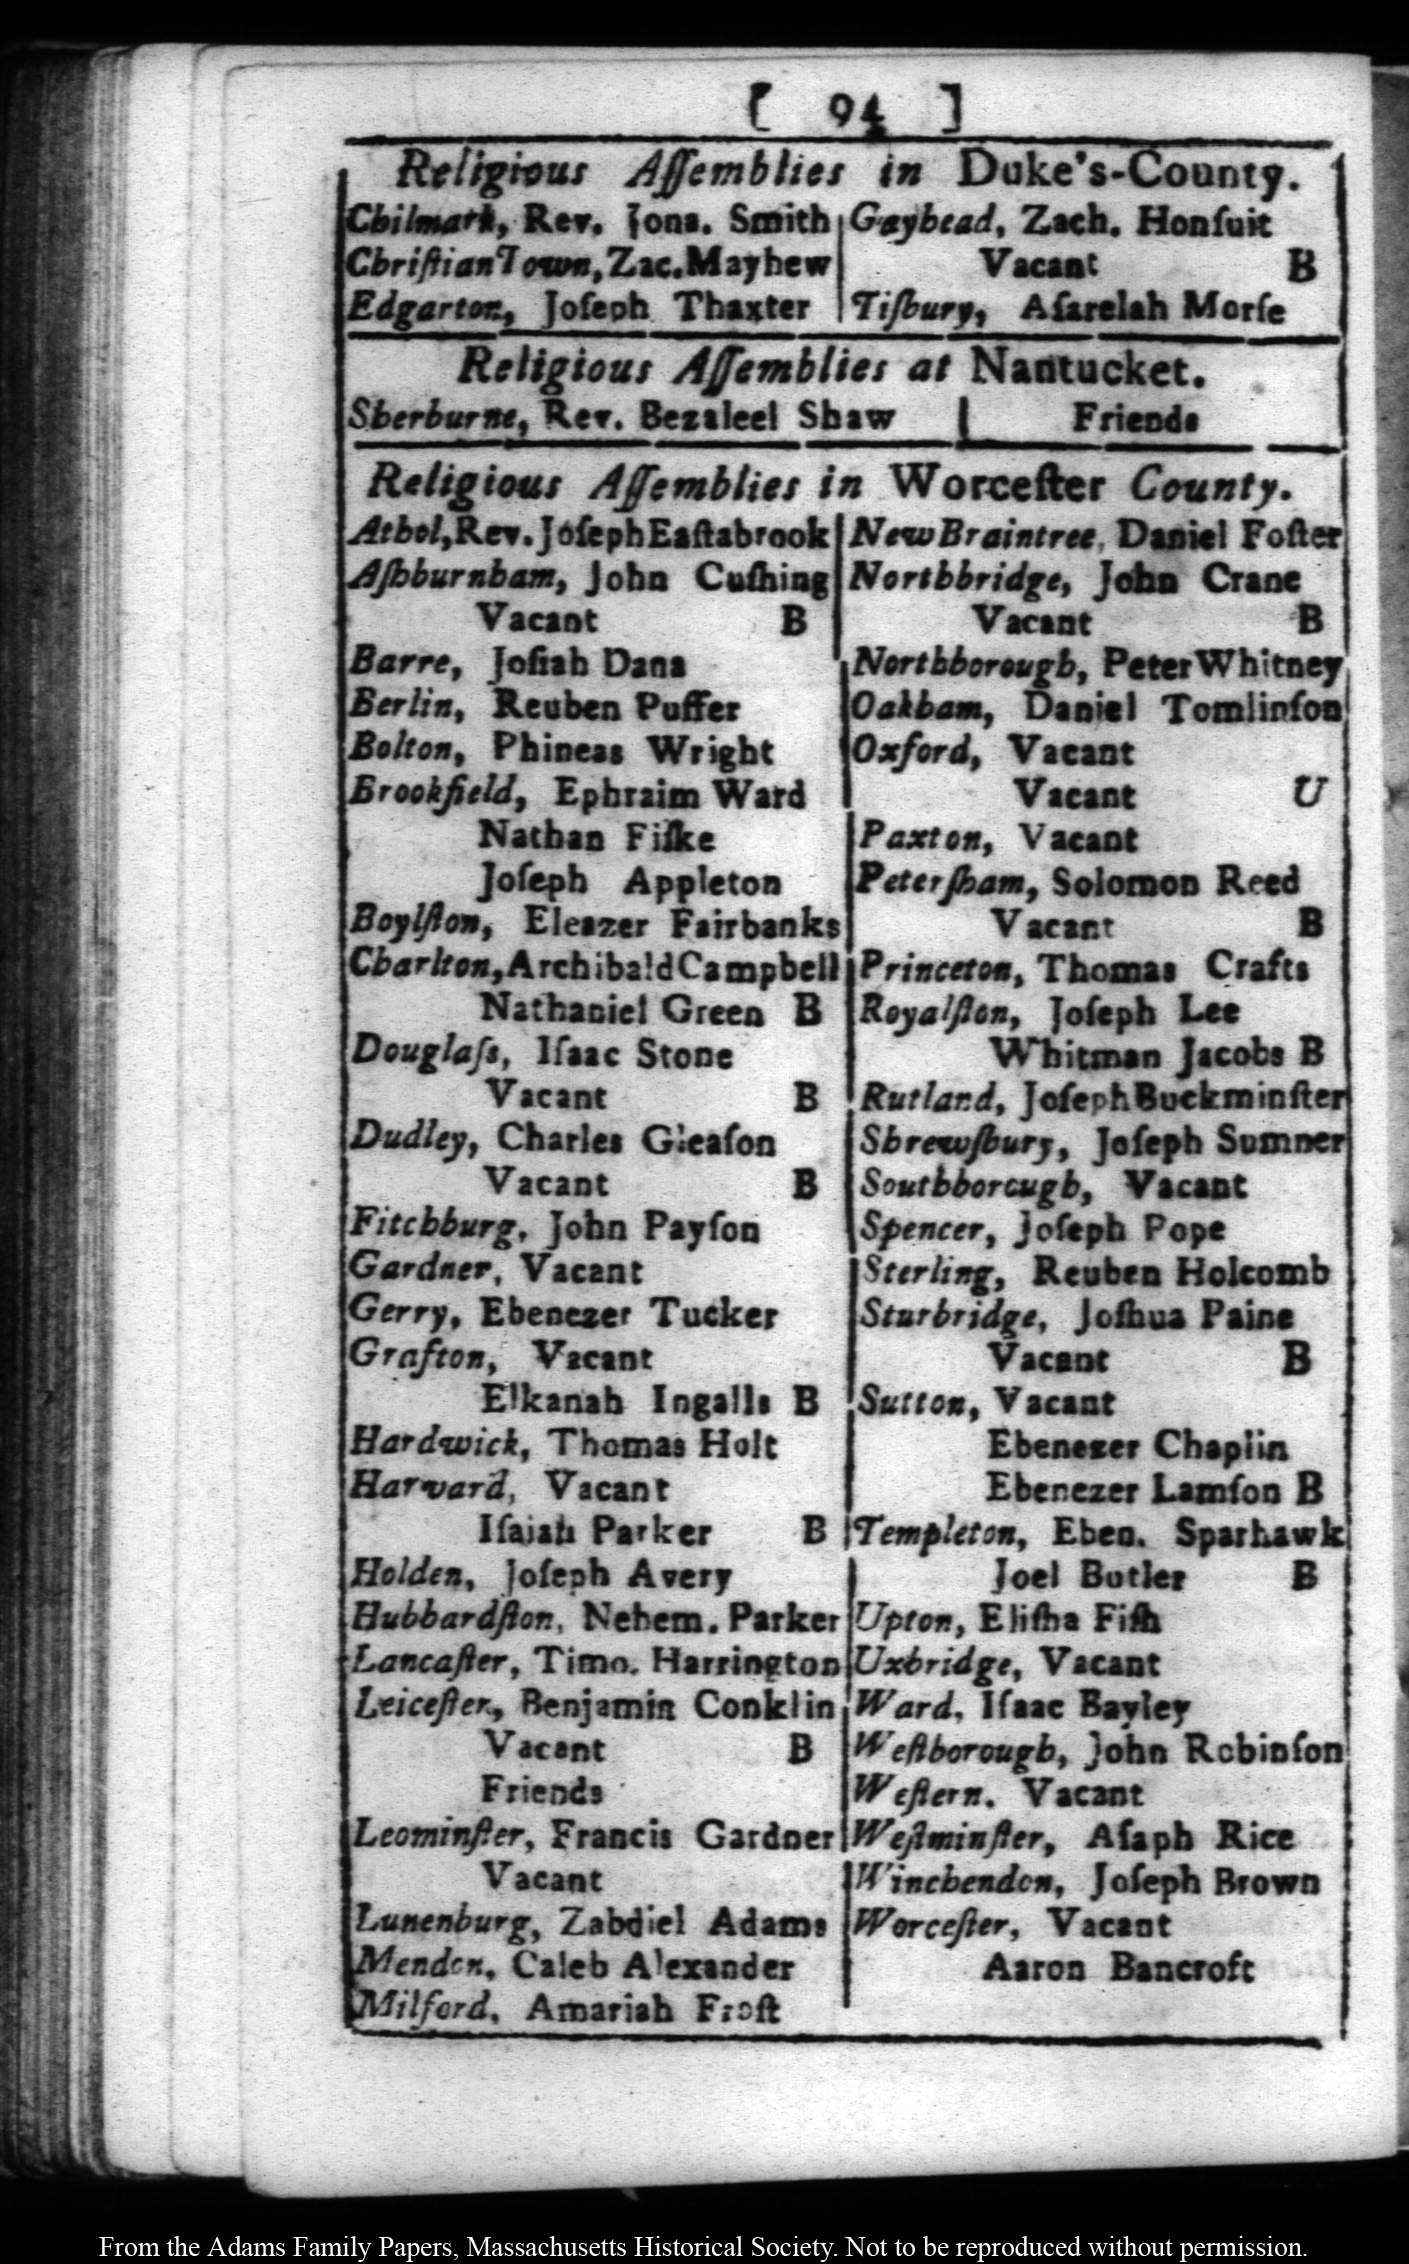 [ 94 ]
Religious Aſſemblies in Duke's-County.
Chilmark, Rev. Jona. Smith
Chriſtian Town, Zac. Mayhew
Edgarton, Joſeph Thaxter
Gayhead, Zach. Honſuit
Vacant B
Tiſbury, Aſarelah Morſe
Religious Aſſemblies at Nantucket.
Sherburne, Rev. Bezaleel Shaw
Friends
Religious Aſſemblies in Worceſter County.
Athol, Rev. Joſeph Eaſtabrook
Aſhburnham, John Cuſhing
Vacant B
Barre, Joſiah Dana
Berlin, Reuben Puffer
Bolton, Phineas Wright
Brookfield, Ephraim Ward
Nathan Fiſke
Joſeph Appleton
Boylſton, Eleazer Fairbanks
Charlton, Archibald Campbell
Nathaniel Green B
Douglaſs, Iſaac Stone
Vacant B
Dudley, Charles Gleaſon
Vacant B
Fitchburg, John Payſon
Gardner, Vacant
Gerry, Ebenezer Tucker
Grafton, Vacant
Elkanah Ingalls B
Hardwick, Thomas Holt
Harvard, Vacant
Iſaiah Parker B
Holden, Joſeph Avery
Hubbardſton, Nehem. Parker
Lancaſter, Timo. Harrington
Leiceſter, Benjamin Conklin
Vacant B
Friends
Leominſter, Francis Gardner
Vacant
Lunenburg, Zabdiel Adams
Mendon, Caleb Alexander
Milford, Amariah Froſt
New Braintree, Daniel Foſter
Northbridge, John Crane
Vacant B
Northborough, Peter Whitney
Oakham, Daniel Tomlinſon
Oxford, Vacant
Vacant U
Paxton, Vacant
Peterſham, Solomon Reed
Vacant B
Princeton, Thomas Crafts
Royalſton, Joſeph Lee
Whitman Jacobs B
Rutland, Joſeph Buckminſter
Shrewſbury, Joſeph Sumner
Southborough, Vacant
Spencer, Joſeph Pope
Sterling, Reuben Holcomb
Sturbridge, Joſhua Paine
Vacant B
Sutton, Vacant
Ebenezer Chaplin
Ebenezer Lamſon B
Templeton, Eben. Sparhawk
Joel Butler B
Upton, Eliſha Fiſh
Uxbridge, Vacant
Ward, Iſaac Bayley
Weſtborough, John Robinſon
Weſtern. Vacant
Weſtminſter, Aſaph Rice
Winchendon, Joſeph Brown
Worceſter, Vacant
Aaron Bancroft
From the Adams Family Papers, Massachusetts Historical Society. Not to be reproduced without permission.